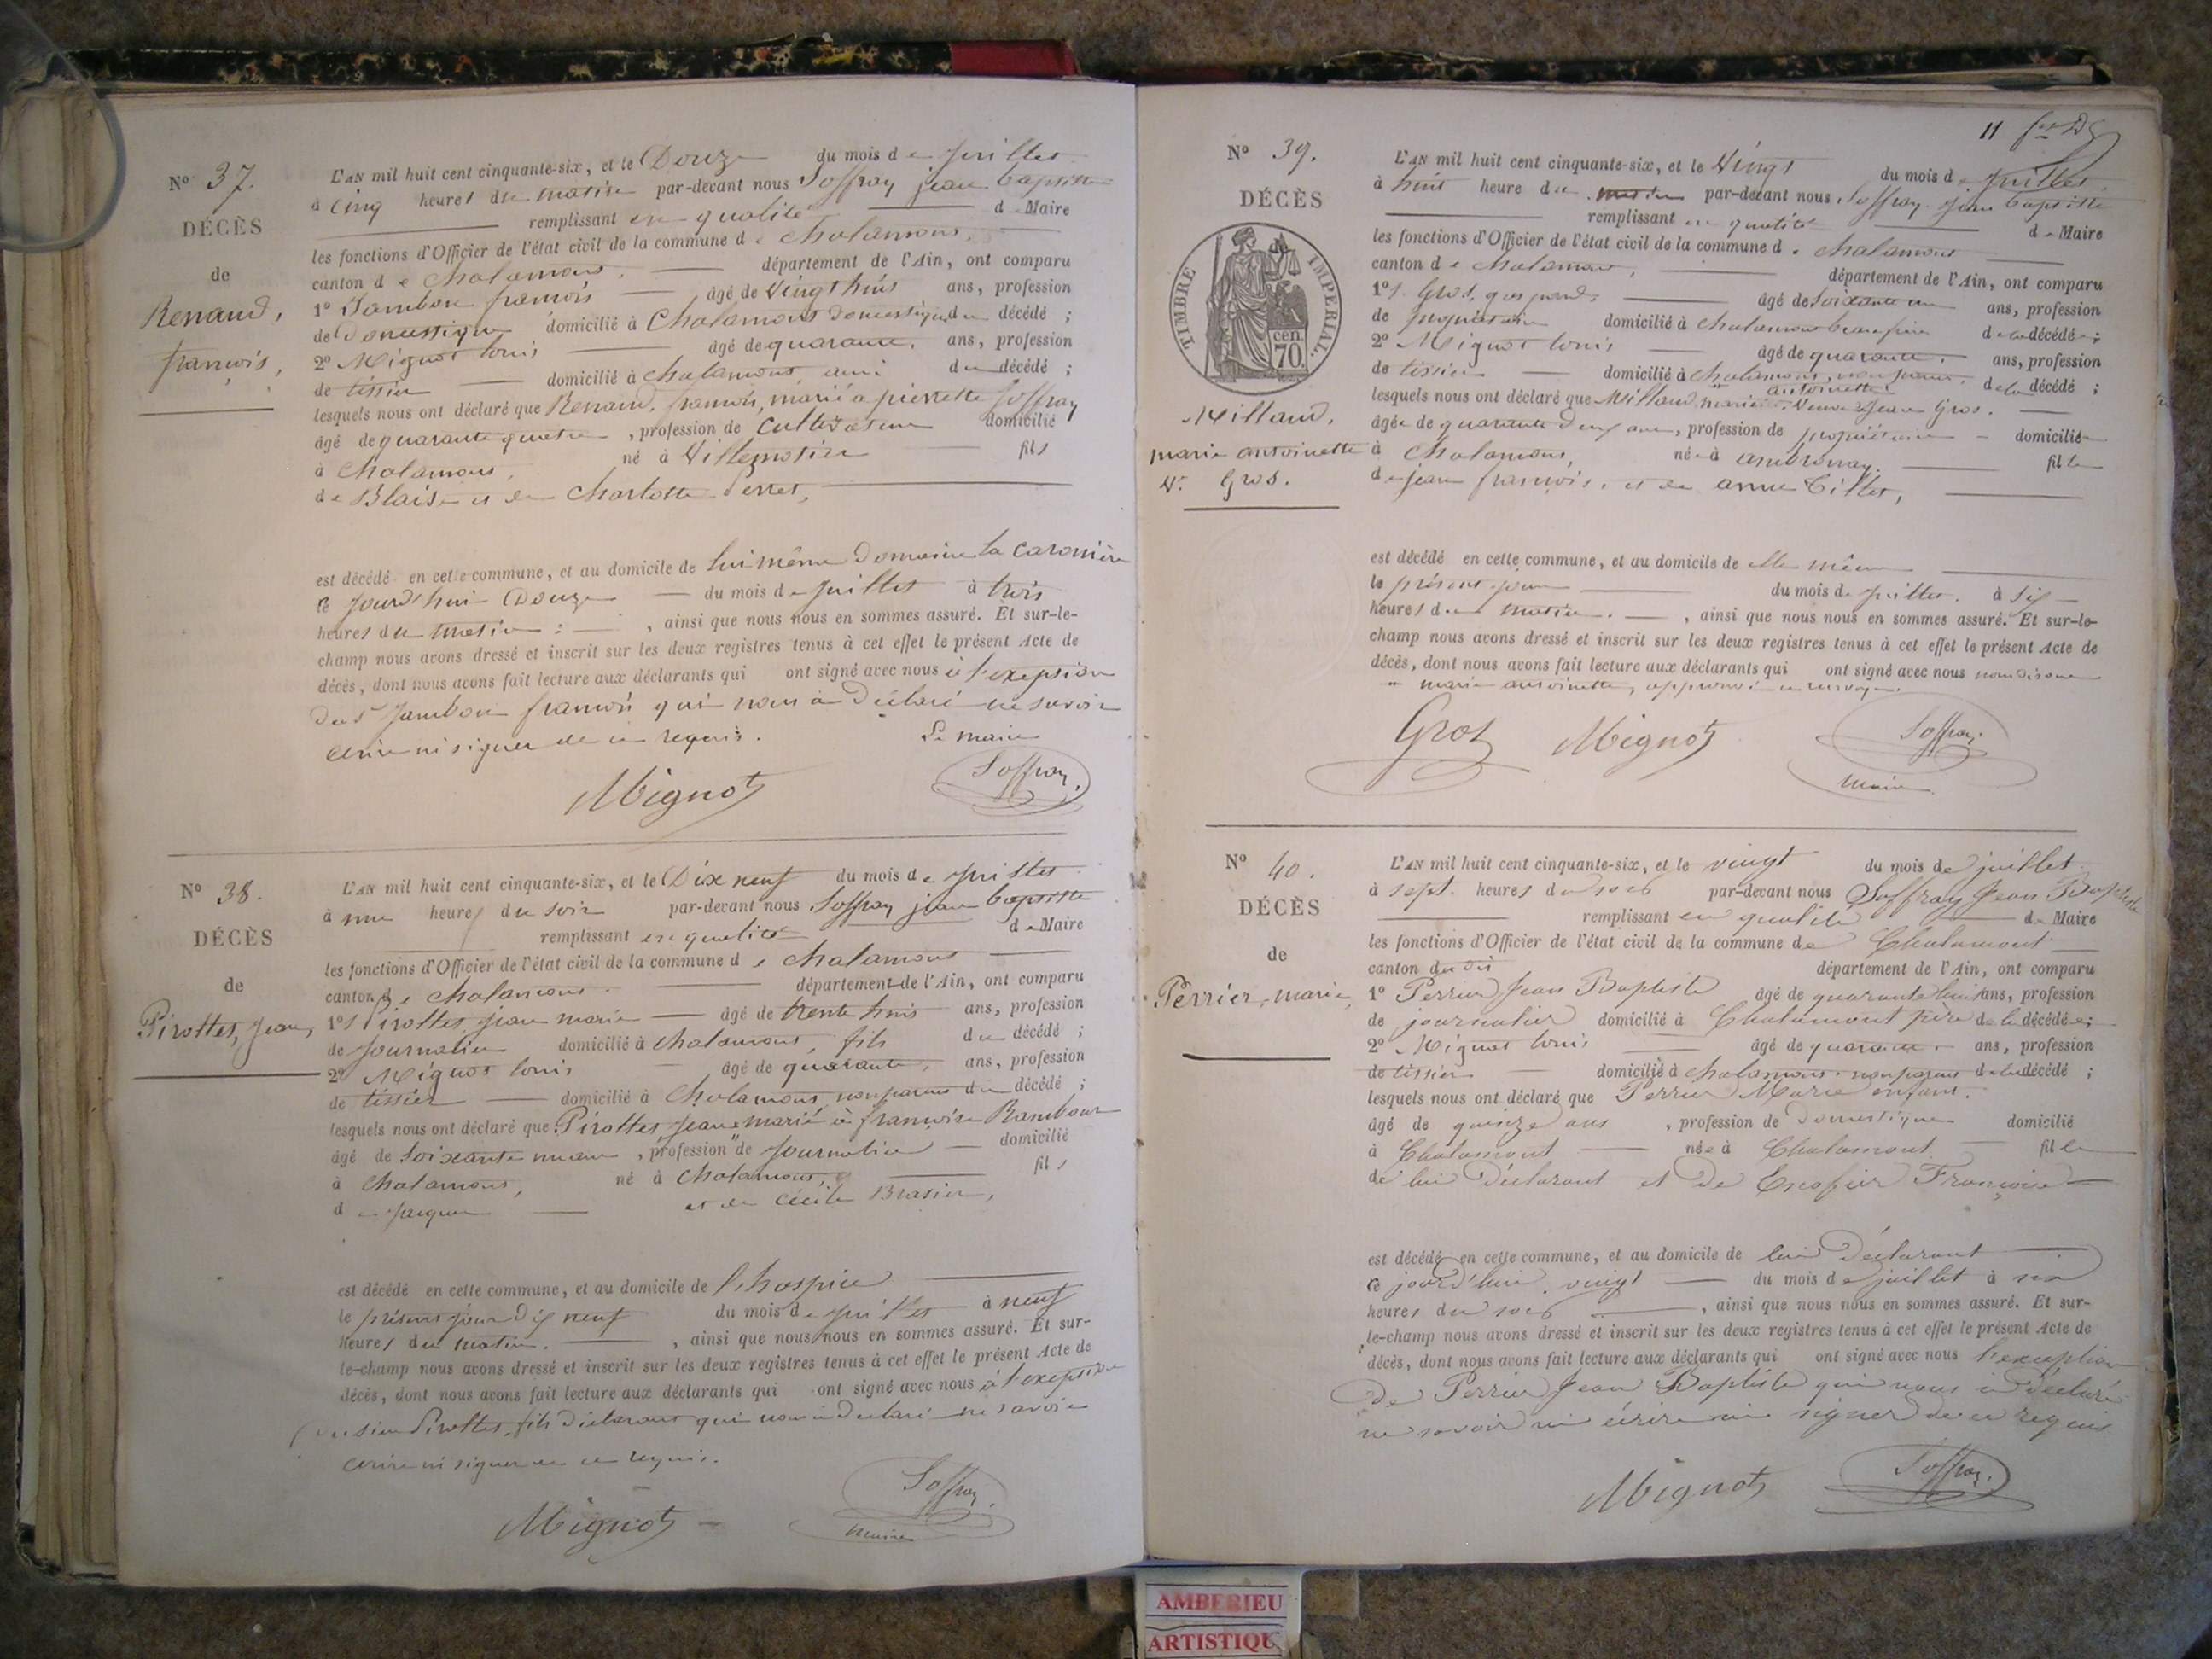 No 37.
DÉCÈS
de
Renaud,
françois,
L'AN mil huit cent cinquante-six, et le Douze du mois de juillet
à cinq heures du matin par-devant nous Soffray jean baptiste
remplissant en qualité de Maire
les fonctions d'Officier de l'état civil de la commune de Chalamont,
canton de Chalamont, département de l'Ain, ont comparu
1o Jambon françois âgé de vingt huit ans, profession
de Domestique domicilié à Chalamont domestique du décédé ;
2o Mignot louis âgé de quarante, ans, profession
de tissier domicilié à Chalamont, ami du décédé ;
lesquels nous ont déclaré que Renaud, françois, marié à pierrette Soffray
âgé de quarante quatre , profession de Cultivateur domicilié
à Chalamont, né à Villemotier fils
de Blaise et de Charlotte Perret,
est décédé en cette commune, et au domicile de lui même Domaine la caronière
ce jourd'hui Douze du mois de juillet à trois
heures du matin : , ainsi que nous nous en sommes assuré. Et sur-le-
champ nous avons dressé et inscrit sur les deux registres tenus à cet effet le présent Acte de
décès, dont nous avons fait lecture aux déclarants qui ont signé avec nous à l'exeption
du Sr Jambon françois qui nous a Déclaré ne savoir
écrire ni signer de ce requis. Le maire
Mignot Soffray
No 38.
DÉCÈS
de
Pirollet, Jean,
L'AN mil huit cent cinquante-six, et le Dix neuf du mois de juillet
à une heure du soir par-devant nous Soffray jean baptiste
remplissant en qualité de Maire
les fonctions d'Officier de l'état civil de la commune de Chalamont
canton de Chalamont. département de l'Ain, ont comparu
1o Pirollet jean marie âgé de trente huit ans, profession
de Journalier domicilié à Chalamont, fils du décédé ;
2o Mignot louis âgé de quarante, ans, profession
de tissier domicilié à Chalamont, non parent du décédé ;
lesquels nous ont déclaré que Pirollet, Jean marié à françoise
âgé de Soixante , profession de Journalier domicilié
à Chalamont, né à Chalamont, fils
de Jacques et de Cécile Brasier,
est décédé en cette commune, et au domicile de l'hospice
le présent jour Dix neuf du mois de juillet à neuf
heures du matin. , ainsi que nous nous en sommes assuré. Et sur-
le-champ nous avons dressé et inscrit sur les deux registres tenus à cet effet le présent Acte de
décès, dont nous avons fait lecture aux déclarants qui ont signé avec nous à l'exeption
du sieur Pirollet, fils Déclarant qui nous a Déclaré ne savoir
écrire ni signer de ce requis.
Mignot Soffray
maire
11
No 39.
DÉCÈS
de
TIMBRE IMPERIAL.
70 cen
Millaud,
marie antoinette
Ve Gros.
L'AN mil huit cent cinquante-six, et le Vingt du mois de Juillet
à huit heure du matin par-devant nous Soffray jean baptiste
remplissant en qualité de Maire
les fonctions d'Officier de l'état civil de la commune de Chalamont
canton de Chalamont, département de l'Ain, ont comparu
1o Gros, gaspard, âgé de Soixante un ans, profession
de propriétaire domicilié à Chalamont beau père de la décédée ;
2o Mignot louis âgé de quarante, ans, profession
de tissier domicilié à Chalamont, non parent, de la décédé ;
antoinette
lesquels nous ont déclaré que Millaud, marie Veuve de Jean Gros.
âgée de quarante ans, profession de propriétaire domiciliée
à Chalamont, née à ambronay. fille
de jean françois, et de anne
est décédé en cette commune, et au domicile de elle même
le présent jour du mois de juillet. à six
heures du matin. , ainsi que nous nous en sommes assuré. Et sur-le-
champ nous avons dressé et inscrit sur les deux registres tenus à cet effet le présent Acte de
décès, dont nous avons fait lecture aux déclarants qui ont signé avec nous
marie antoinette, approuvé
Gros Mignot Soffray
maire
No 40.
DÉCÈS
de
Perrier, marie,
L'AN mil huit cent cinquante-six, et le vingt du mois de juillet
à sept heures du soir par-devant nous Soffray Jean Baptiste
remplissant en qualité de Maire
les fonctions d'Officier de l'état civil de la commune de Chalamont
canton du dit département de l'Ain, ont comparu
1o Perrier Jean Baptiste âgé de quarante huit ans, profession
de journalier domicilié à Chalamont père de la décédée ;
2o Mignot louis âgé de quarante. ans, profession
de tissier domicilié à Chalamont. non parent de la décédé ;
lesquels nous ont déclaré que Perrier Marie enfant.
âgé de quinze ans , profession de Domestique domicilié
à Chalamont née à Chalamont fille
de lui Déclarant et de Escofier Françoise
est décédé en cette commune, et au domicile de lui Déclarant
ce jourd'hui vingt du mois de juillet à six
heures du soir , ainsi que nous nous en sommes assuré. Et sur-
le-champ nous avons dressé et inscrit sur les deux registres tenus à cet effet le présent Acte de
décès, dont nous avons fait lecture aux déclarants qui ont signé avec nous l'exception
de Perrier Jean Baptiste qui nous a Déclaré
ne savoir ni écrire ni signer de ce requis
Mignot Soffray
AMBERIEU
ARTISTIQU